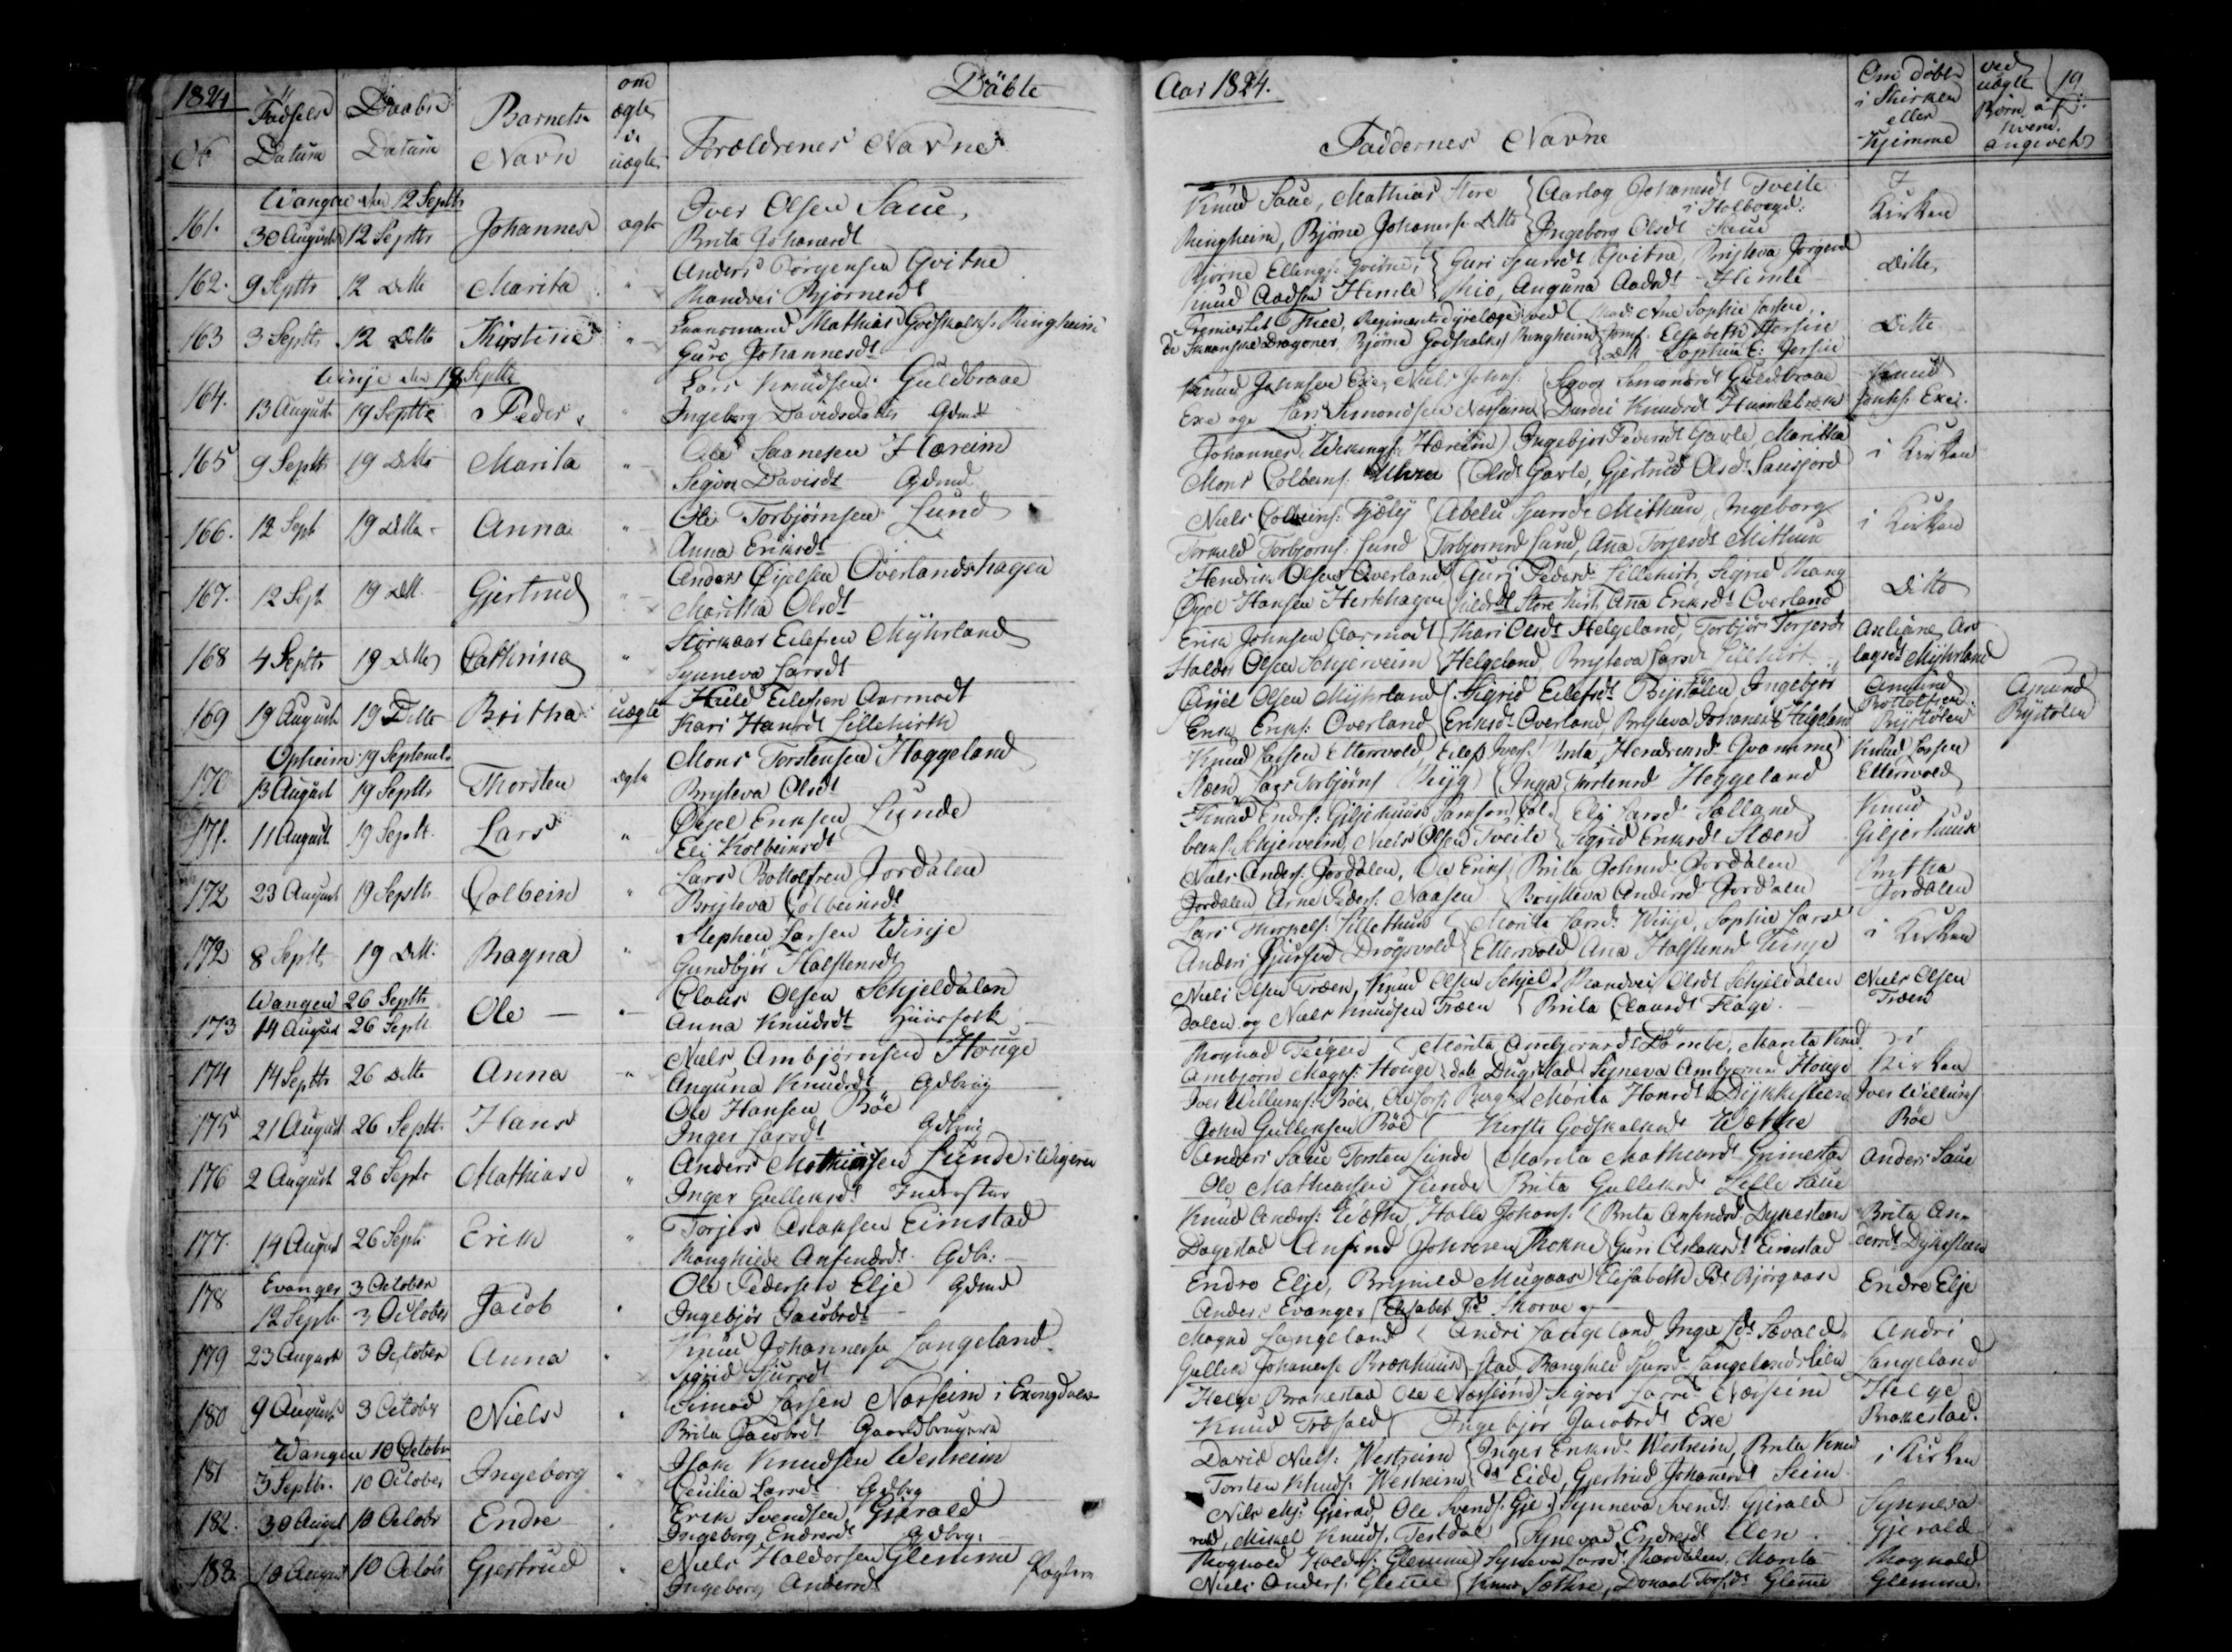 1824
Døbte
Aar 1824.
19
No
Fødsels Datum
Daabs Datum
Barnets Navn
om ægte uægte
Forældrenes Navne
Faddernes Navne
Om døbt i Kirken eller Hjemme
ved uægte Børn af hvem angivet
Wangen den 12 Septbr
161. 30 August 12 Septbr Johannes ægte Iver Olsen Saue, Brita Johansdt
Knud Saue, Mathias Store Ringheim, Bjørne Johannes Ditto
Aarlog Johanesdt Tveite i Holbøygd: Ingeborg Olsdt Saue
I Kirken
162. 9 Septbr 12 Ditto Marita " Anders Jørgensen Gvitne Randvei Bjørnesdt
Bjørne Ellings: Gvitne, Knud Aadsen Himle
Guri Sjursdt Gvitne, Bryteva Jørgensd Mio, Anguna Aadsdt Himle
Ditto
163 3 Septbr 12 Ditto Kirstine " Mathias Godskalks. Ringheim Guro Johannesdt
Regiments dyrelæge ved de Dragoner, Bjørne Godskalks Ringheim
Elisabeth Sophia
Ditto
Winje den 19 Septbr
164. 13 August 19 Septbr Peder " Lars Knudsen Guldbraae Ingeborg Davidsdatter Gdmd
Knud Johnsen Exe, Niels Johns: Exe og Lars Simondsen Nærheim
Sigvor Simonsdt Guldbraae Durdei Knudsdt
Knud Johns: Exe.
165 9 Septbr 19 Ditto Marita " Ole Saanesen Hæreim Sigvor Davisdt Gdmd
Johannes Wikings: Hæreim Mons Colbens:
Ingebjør Pedersdt Gavle, Maritha Olsdt Gavle, Gjertrud Olsdt
i Kirken
166. 12 Sept 19 Ditto Anna " Ole Torbjørnsen Lund Anna Eriksdt
Niels Colbeins: Torkild Torbjørns: Lund
Abelu Sjursdt Mithun, Ingeborg Torbjørnsd Lund, Anna Torjesdt Mithun
i Kirken
167. 12 Sept 19 Dtt. Gjertrud " Anders Øyelsen Øverlandshagen Maritha Olsdt
Hendrik Olsen Øverland Øyel Hansen Hirthhagen
Guri Pedersdt Lillehirt, Sigrid Mang hildsdt Store hirt, Anna Eriksdt Overland
Ditto
168 4 Septbr 19 Ditto Cathrina " Storkaar Eilefsen Myhrland Synneva Larsdt
Erik Johnsen Aarmodt Haldor Olsen Schjerveim
Kari Olsdt Helgeland, Torbjør Torjersdt Helgeland Brytteva Larsdt Lillehirt
Arlagsdt Myhrland
169 19 August 19 Ditto Britha uægte Huld Eilefsen Aarmodt Kari Hansdt Lillehirth
Øyel Olsen Myhrland Erik Eriks: Overland
Sigrid Eilefsdt Rystølen Ingebjør Eriksdt Overland Brytteva Johanesdt Helgeland
Amund Bottolfsen Rystølen
Amund Rystølen
Opheim 19 Septembr
170 13 August 19 Septbr Thorsten ægte Mons Torstensen Haggeland Brytteva Olsdt
Knud Larsen Ettervold, Eilef Lars Torbjørns
Brita Hendriksdt Qvamme Inga Torstensd Heggeland
Knud Larsen Ettervold
171. 11 August 19 Sept. Lars " Øyel Eriksen Lunde Eli Kolbeinsdt
Knud Enders: Giljehuus Samson Colbens: Schjerveim, Niels Olsen Tveite
Eli Larsdt Sælland Sigrid Eriksdt Slæen
Knud Giljerhuus
172 23 August 19 Septbr Colbein " Lars Bottolfsen Jordalen Brytteva Colbeinsdt
Niels Anders: Jordalen, Ole Eriks Jordalen Arne Peders: Naasen
Brita Johnsd Jordalen Brytteva Andersd Jordalen
Britha Jordalen
172 8 Septbr 19 Dtt. Ragna " Stephen Larsen Winje Gundbjør Halstensdt
Lars Thorpels: Lillethun Anders Sjursen Drøgsvold
Marita Larsdt Winje, Sophie Larsd Ettervold Ana Halstensd Winje
i Kirken
Wangen 26 Septbr
173 14 August 26 Sept. Ole " Claus Olsen Schjeldalen Anna Knudsdt Huusfolk
Niels Olsen Træen, Knud Olsen Schjel dalen og Niels Knudsen Træen
Randvei Olsdt Schjeldalen Brita Clausdt Flage.
Niels Olsen Træen
174 14 Septbr 26 Ditto Anna " Niels Ambjørnsen Houge Anguna Knudsdt Gdbrug
Rognad Teigen Ambjørn Magns: Houge
Marita Ambjørnsdt Dømbe, Marita Knudsdtr Dugstad Synneva Ambjørnsd Houge
i Kirken
175 21 August 26 Septbr Hans Ole Hansen Bøe Inger Larsdt Gdbrug
Iver Willums: Bøe, Ole Lars: Berge John Gulleksen Bøe
Marita Hansdt Dykkesteen Kirsti Godskalksdt Wæthe
Iver Willums Bøe
176 2 August 26 Septr Mathias " Anders Mathiasen Lunde i Wigøren Inger Gulleksdt Inderster
Anders Saue Torsten Lunde Ole Mathiasen Lunde
Marita Mathiasdt Grimestad Brita Gulleksdt Lille Saue
Anders Saue
177. 14 August 26 Septr Erik " Torjes Aslaksen Eimstad Ranghilde Anfindsdt Gdb:
Knud Anders: Wæthe, Halle Johans: Dagestad Anfind Johnsen Rokne
Brita Anfindsdt Dykesteen Guri Aslaksdt Eimstad
Brita Andersdt Dykesteen
Evanger 3 October
178 12 Sept. 3 October Jacob " Ole Pedersen Elje Gdmd Ingebjør Jacobsdt
Endre Elje, Brynild Mugaas Anders Evanger
Elisabeth Pdt Bjørgaas Elisabet Skorve
Endre Elje
179 23 August 3 October Anna " Knud Johannesen Langeland Sigrid Sjursdt
Magne Langeland Gullek Johannes Brækhuus
Andri Langeland Inga Sævald stad Ranghild Sjursdt Langeland
Andri Langeland
180 9 August 3 October Niels " Simon Larsen Nærheim i Exingdalen Brita Jacobsdt Gaardbrugere
Helge Brakestad Ole Nærheim Knud Træfald
Sigvor Larsdt Nærheim Ingebjør Jacobsdt Exe
Helge Brakestad.
Wangen 10 Octobr
181 3 Septbr. 10 October Ingeborg " Isak Knudsen Westreim Cecilia Larsdt Gdbrg
David Niels: Westreim Torsten Knuds: Westreim
Inger Eriksdt Westreim, Brita Knudsdt Eide, Gjertrud Johannesdt Seim
i Kirken
182. 30 August 10 Octobr Endre " Erik Svendsen Gjerald Ingeborg Endresdt Gdbrg:
Nils Gjerald, Ole Svends: Gjerald, Mikkel Knuds: Testdal
Synneva Svendsdt Gjerald Synneva Endresdt Uen
Synneva Gjerald
183. 10 August 10 Octobr Gjertrud " Niels Haldorsen Glemme Ingeborg Andersdt
Rognald Haldors: Glemme Niels Anders: Glemme
Synneva Larsdt Marita Knuds Sæthre, Glemme
Rognald Glemme.